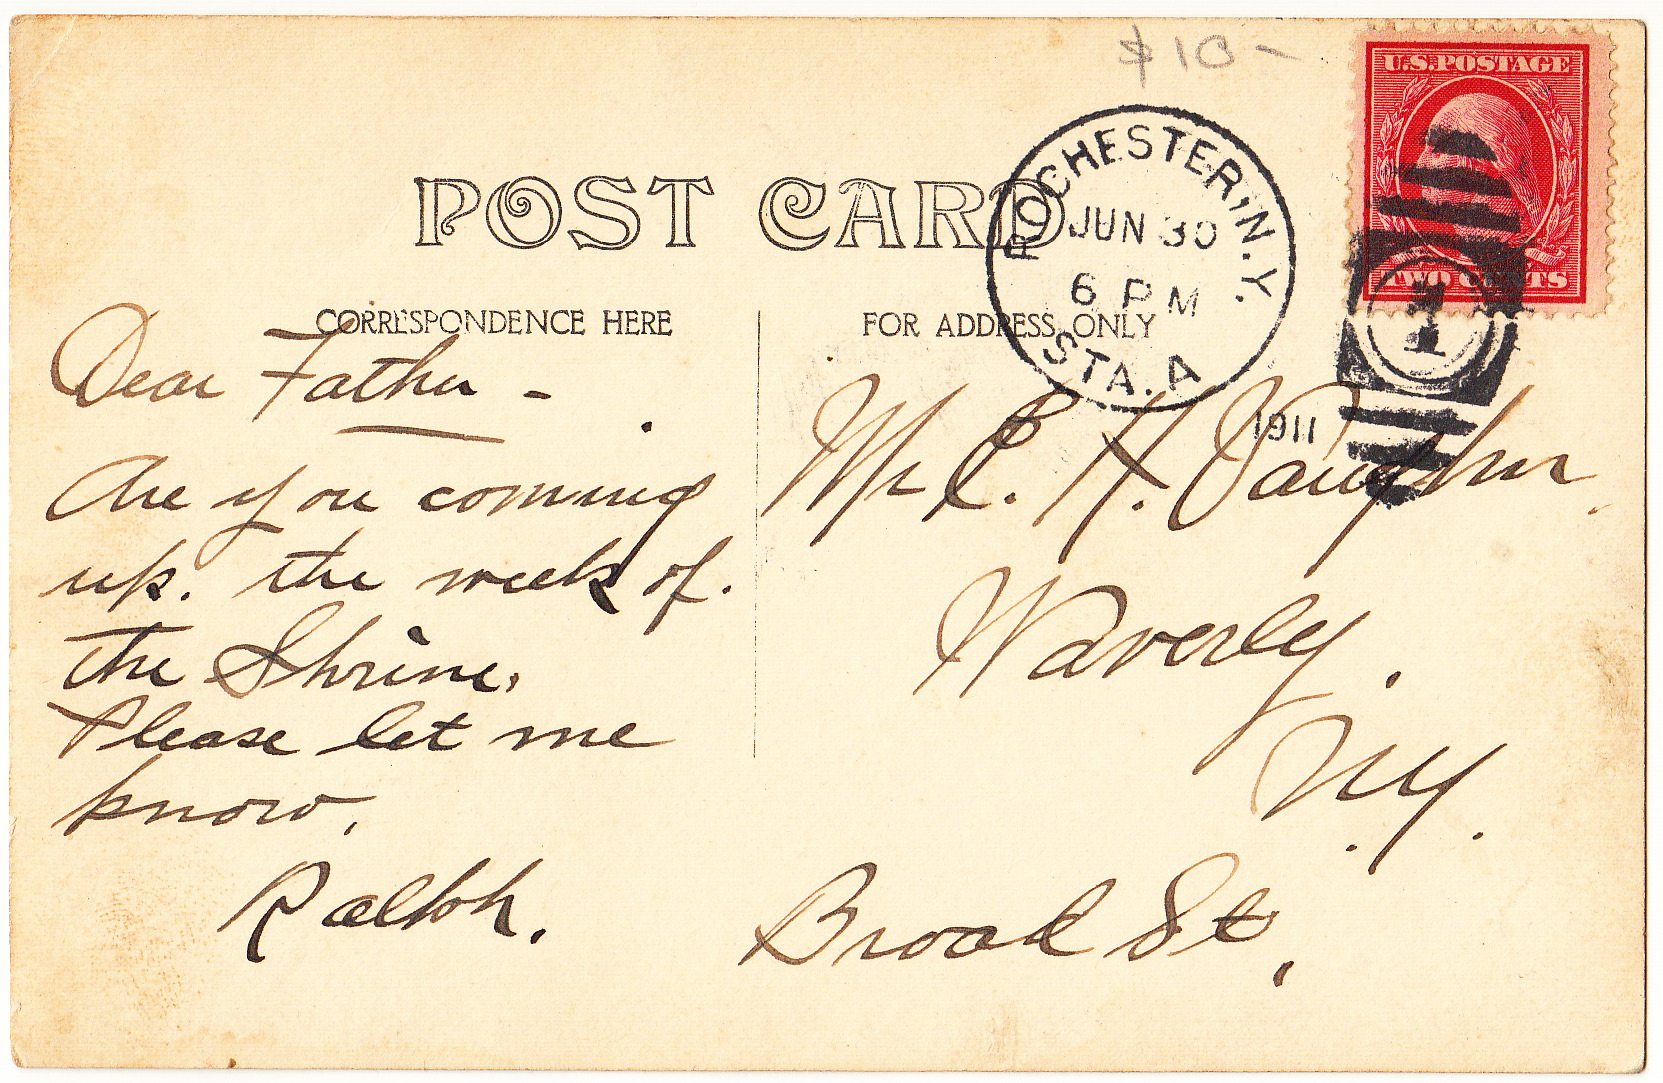 $10-
U.S. POSTAGE
TWO CENTS
POST CARD
ROCHESTER, N.Y.
JUN 30
6 PM
STA. A
1911
1
CORRESPONDENCE HERE
FOR ADDRESS ONLY
Dear Father -
Are you coming
up. the week of.
the Shrine.
Please let me
know.
Ralph.
Mr C. H. Vaughn.
Waverly.
N.Y.
Broad St.